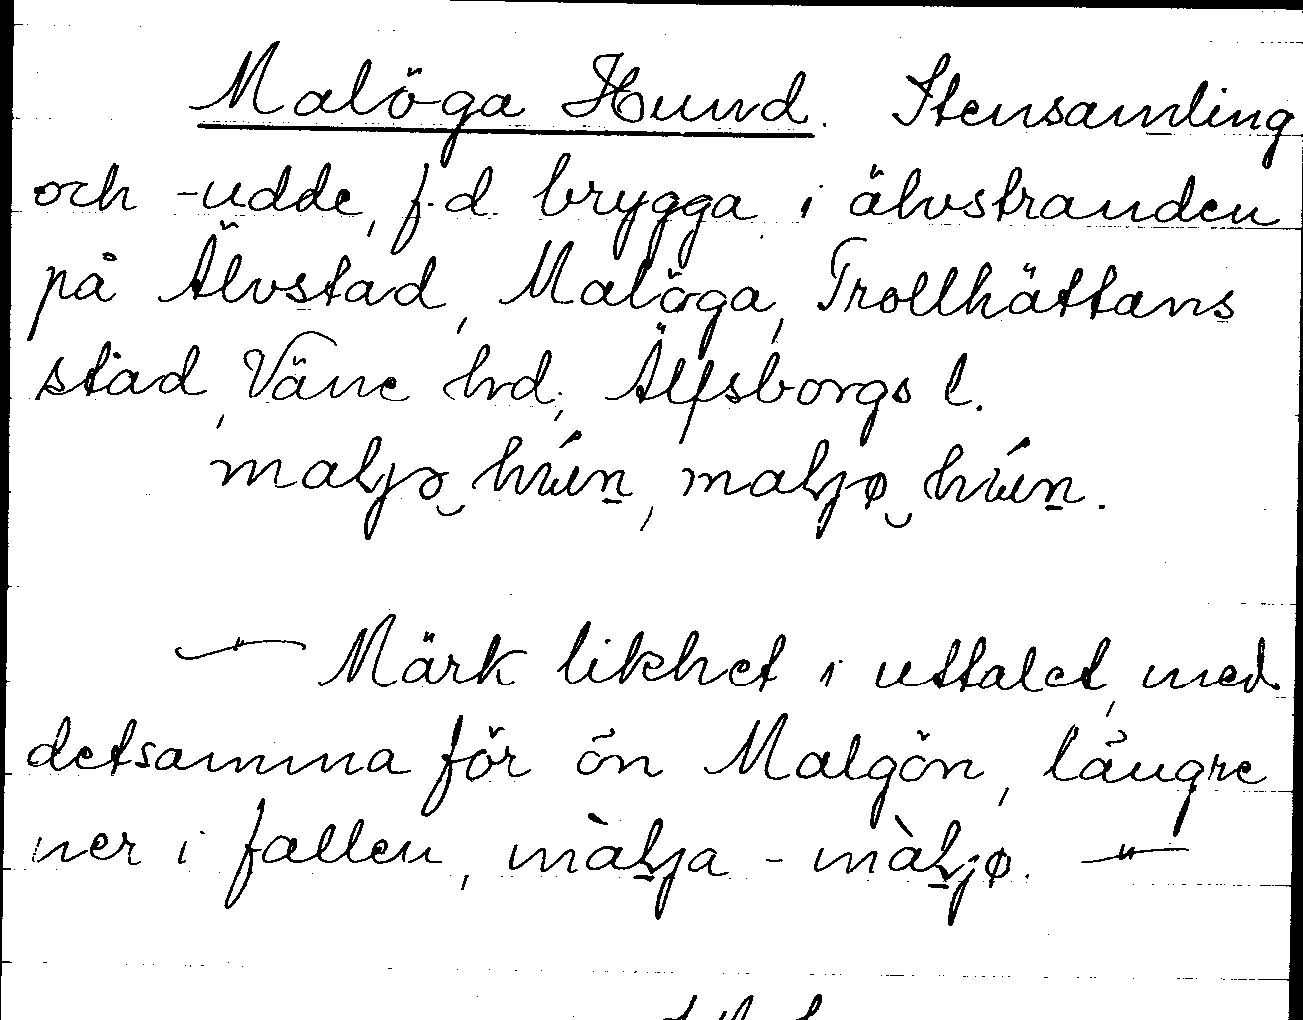 Malöga Hund. Stensamling
och -udde, f.d. brygga i älvstranden
på Älvstad, Malöga, Trollhättans
stad, Väne hrd, Älfsborgs l.
Märk likhet i uttalet, med
detsamma för ön Malgön, längre
ner i fallen,